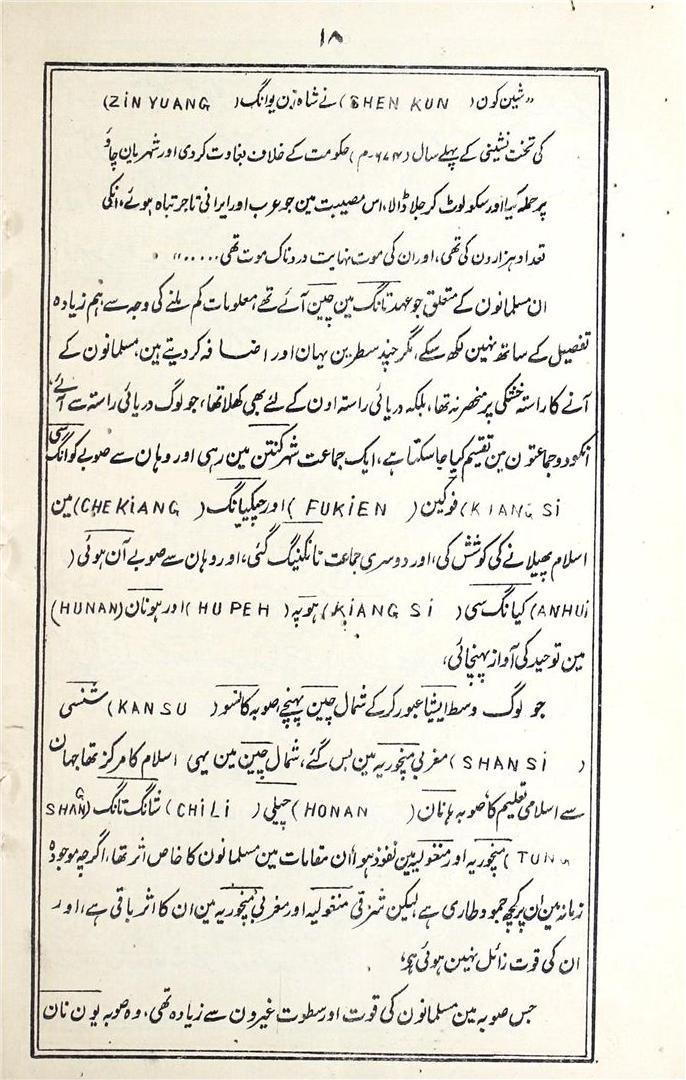 ۱۸
”شین کون ( SHEN KUN ) نے شاہ زن یوانگ ( ZiN YUANG )
کی تخت نشینی کے پہلے سال (۶۷۴ء م) حکومت کے خلاف بغاوت کردی اور شہر یان چاؤ
پر حملہ کیا اور سکو لوٹ کر جلا ڈالا، اس مصیبت مین جو عرب اور ایرانی تاجر تباہ ہوئے، انکی
تعداد ہزارون کی تھی، اور ان کی موت نہایت دردناک موت تھی.....“
ان مسلمانون کے متعلق جو عہد تانگ مین چین آئے تھے، معلومات کم ملنے کی وجہ سے ہم زیادہ
تفصیل کے ساتھ نہین لکھ سکے، مگر چند سطرین یہان اور اضافہ کر دیتے ہین، مسلمانون کے
آنے کا راستہ خشکی پر منحصر نہ تھا، بلکہ دریائی راستہ اون کے لئے بھی کھلا تھا، جو لوگ دریائی راستہ سے آئے،
انکو دو جماعتون مین تقسیم کیا جا سکتا ہے، ایک جماعت شہر کنتن مین رہی اور وہان سے صوبے کوانگ سی
( KIANG Si ) فوکین ( FUKiEN ) اور چیکیانگ ( CHEKiANG ) مین
اسلام پھیلانے کی کوشش کی، اور دوسری جماعت نانکینگ گئی، اور وہان سے صوبے آن ہوئی (
ANHUi) کیانگ سی ( KiANG Si ) ہوپہ ( HUPEH ) اور ہونان (HUNAN)
مین توحید کی آواز پہنچائی،
جو لوگ وسط ایشیا عبور کرکے شمال چین پہنچے، صوبہ کانسو ( KANSU ) شنسی
( SHANSi ) مغربی منچوریہ مین بس گئے، شمال چین مین یہی اسلام کا مرکز تھا جہان
سے اسلامی تعلیم کا صوبہ ہانان ( HONAN ) چیلی ( CHiLi ) شانگ تانگ (SHANG
TUNG) منچوریہ اور منغولیہ مین نفوذ ہوا، ان مقامات مین مسلمانون کا خاص اثر تھا، اگرچہ موجودہ
زمانہ مین ان پر کچھ جمود طاری ہے لیکن شرقی منغولیہ اور مغربی منچوریہ مین ان کا اثر باقی ہے، اور
ان کی قوت زائل نہین ہوئی ہو،
جس صوبہ مین مسلمانون کی قوت اور سطوت غیرون سے زیادہ تھی، وہ صوبہ یون نان